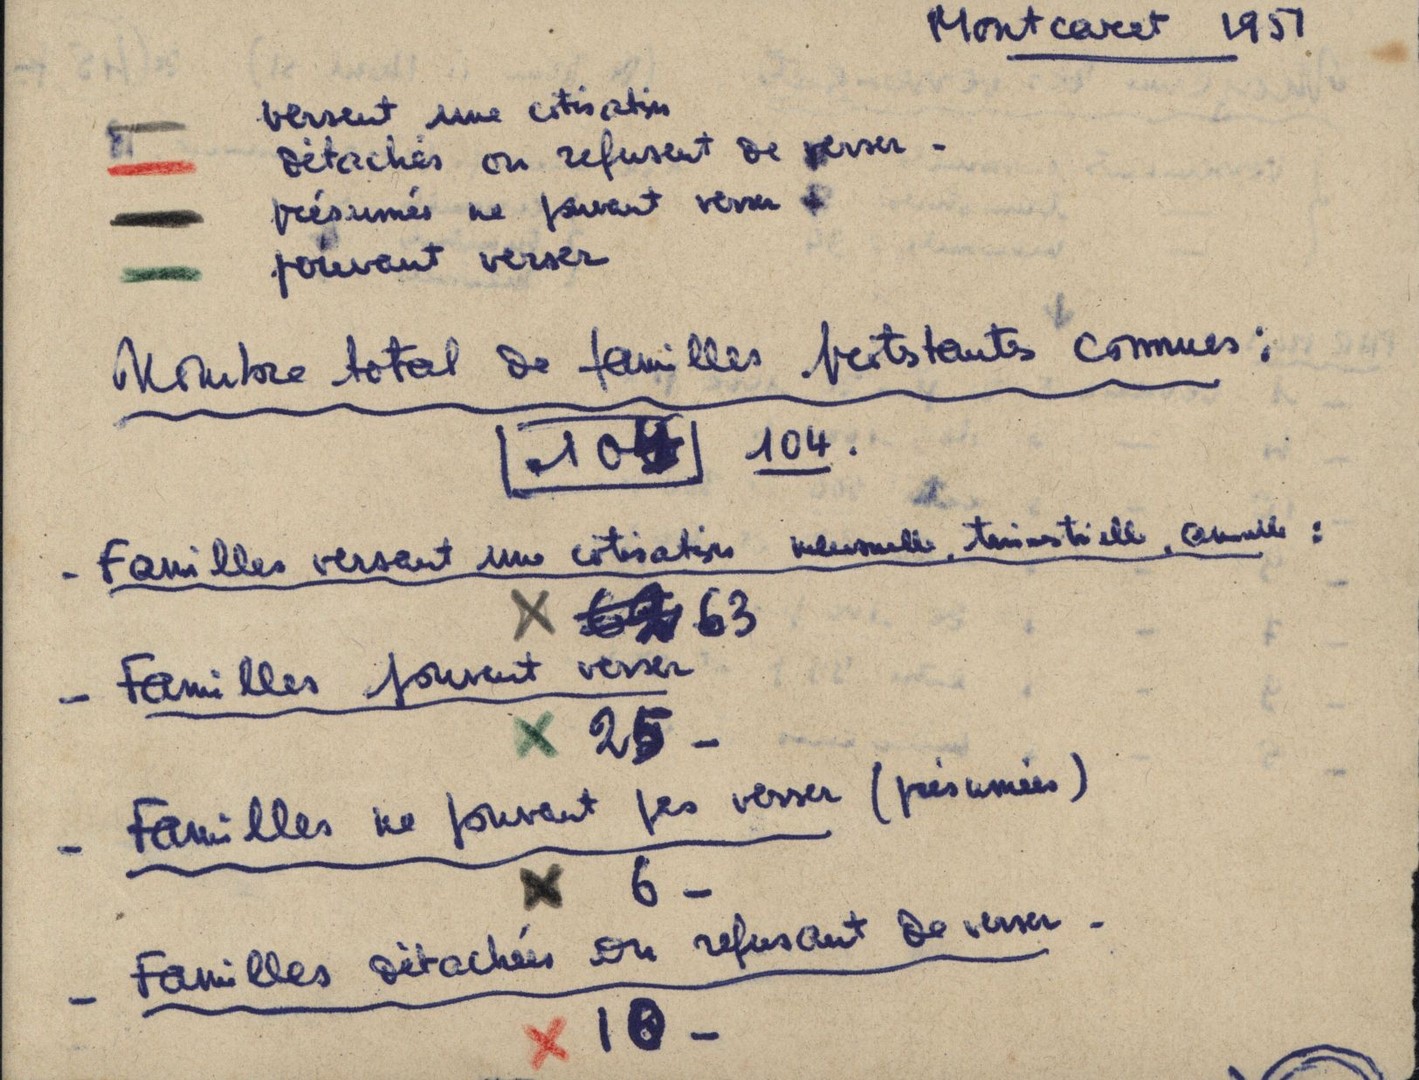 Montcaret 1951
versent une cotisation
détachés ou refusent de verser -
présumés ne pouvant verser
pouvant verser
Nombre total de familles protestantes connues :
104 104.
- Familles versant une cotisation mensuelle, trimestrielle, annuelle :
X 62 63
- Familles pouvant verser
X 25 -
- Familles ne pouvant pas verser (présumées)
X 6 -
- Familles détachées ou refusant de verser -
X 10 -